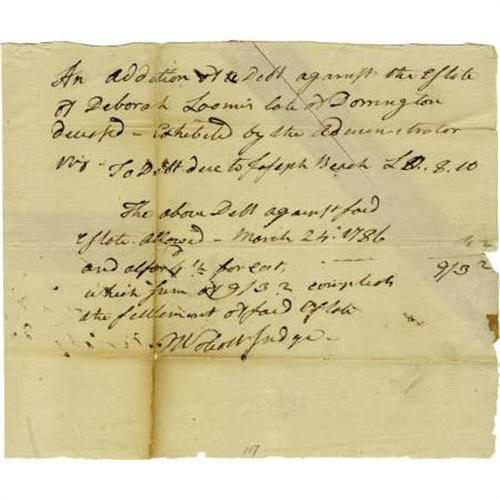 An addition of a Debt against the Estate
of Deborah Loomis late of Dorrington
decesed – Exhibited by the Administrator
viz – To Debt due to Joseph Beach L0..8.10
The above Debt against said
Estate allowed – March 24th. 1786
and also for cost,
9/3 2
which sum of 9/3 2 compleats
the settlement of said Estate
Wolcott Judge –
117